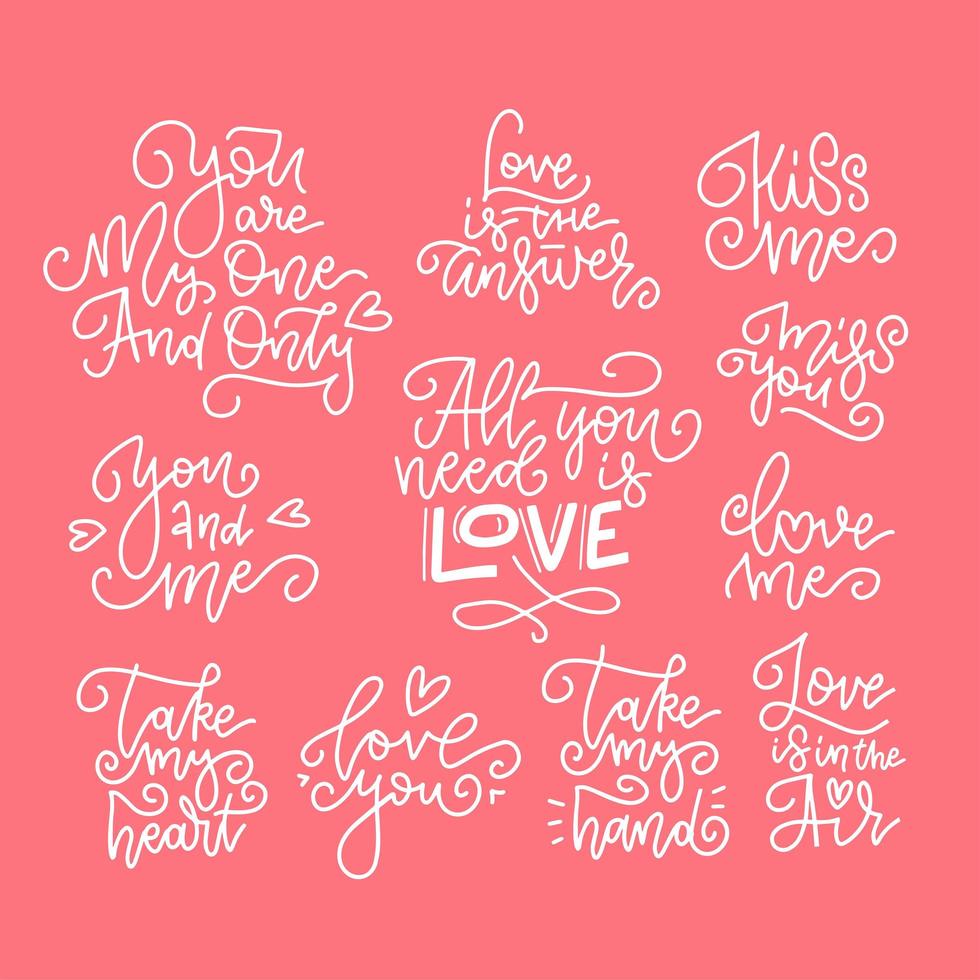 You
are
My One
And Only
Love
is the
answer
Kiss
me
miss
you
All you
need is
LOVE
You
and
me
love
me
Take
my
heart
love
you
Take
my
hand
Love
is in the
Air